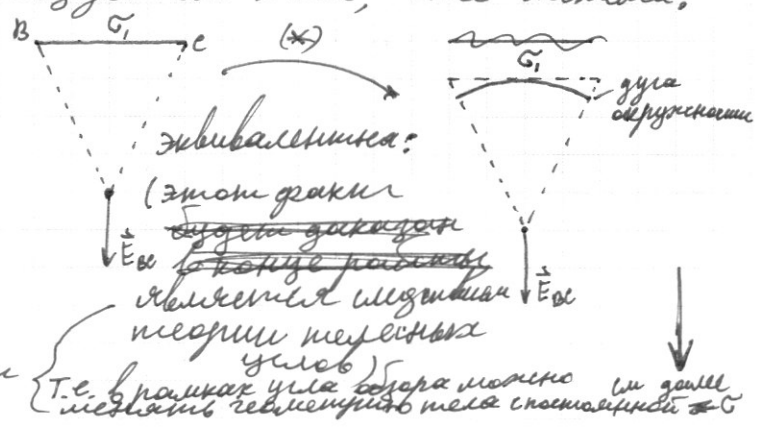 B σ₁ C
(*)
σ₁
дуга
окружности
эквивалентна:
(этот факт
будет доказан
в конце работы
является следствием
теории телесных
углов)
E⃗вс
E⃗вс
Т.е. в рамках угла обзора можно
менять геометрию тела с постоянной σ
см далее